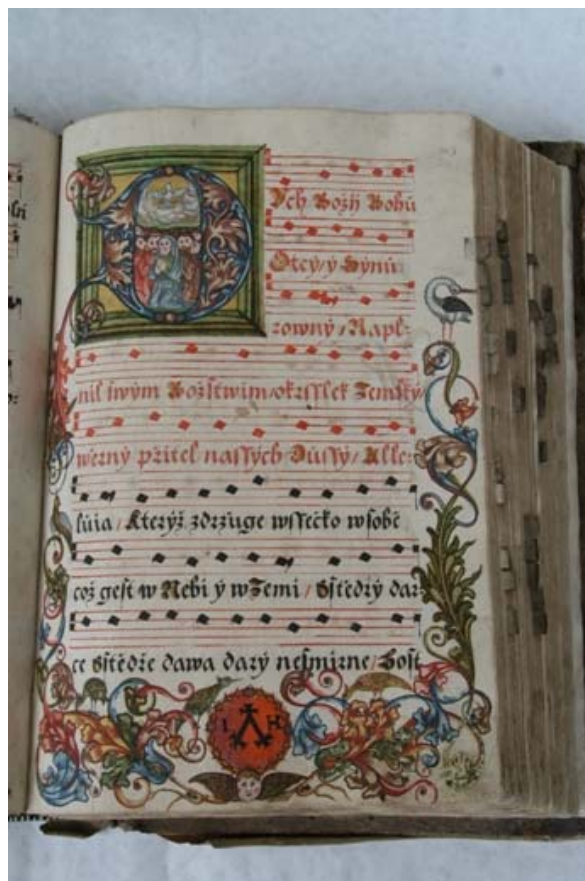 Duch Božij Bohu
Otcy / y Synu
rowný / Napl:
nil swým Božstwim / okrsslek Zemský /
werný přitel nassých Dussý / Alle:
lúia / Kterýž zdržuge wssečko wsobě
což gest w Nebi ý w Zemi / Sstědrý dar
ce Sstědře dawa darý nesmirne / Host
I H